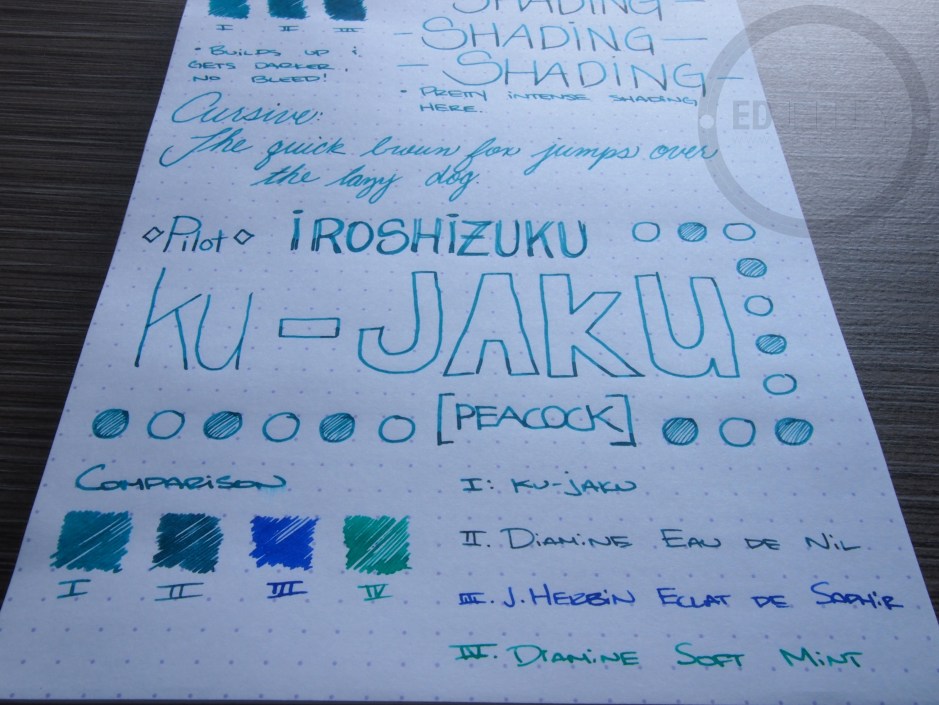 I II III
SHADING -
- SHADING -
- SHADING -
• BUILDS UP &
GETS DARKER,
NO BLEED!
• PRETTY INTENSE SHADING
HERE.
Cursive:
The quick brown fox jumps over
the lazy dog.
Pilot IROSHIZUKU
KU-JAKU
[PEACOCK]
COMPARISON
I II III IV
I: KU-JAKU
II. DIAMINE EAU DE NIL
III. J. HERBIN ECLAT DE SAPHIR
IV. DIAMINE SOFT MINT